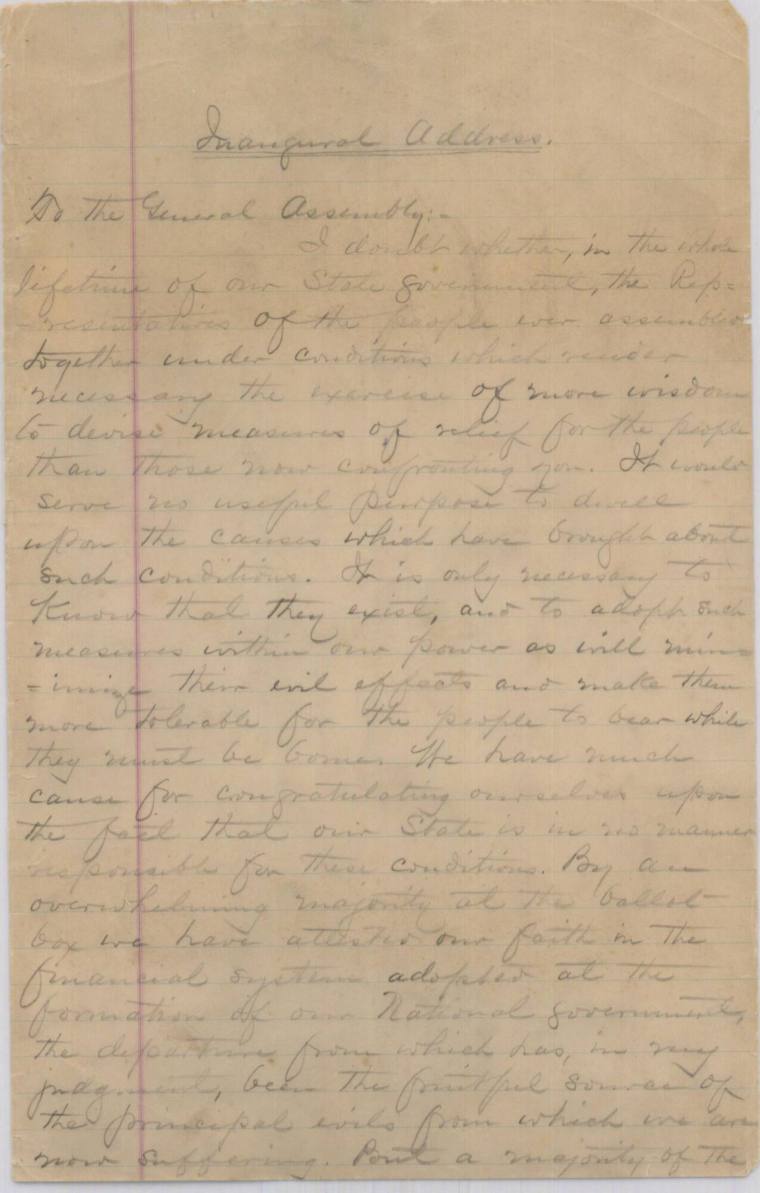 Inaugural Address.
To the General Assembly:-
I doubt whether, in the whole
lifetime of our State government, the Rep=
-resentatives of the people ever assembled
together under conditions which render
necessary the exercise of more wisdom
to devise measures of relief for the people
than those now confronting you. It would
serve no useful purpose to dwell
upon the causes which have brought about
such conditions. It is only necessary to
know that they exist, and to adopt such
measures within our power as will min=
=imize their evil effects and make them
more tolerable for the people to bear while
they must be borne. We have much
cause for congratulating ourselves upon
the fact that our State is in no manner
responsible for these conditions. By an
overwhelming majority at the ballot
box we have attested our faith in the
financial system adopted at the
formation of our National government,
the departure from which has, in my
judgment, been the fruitful source of
the principal evils from which we are
now suffering. But a majority of the